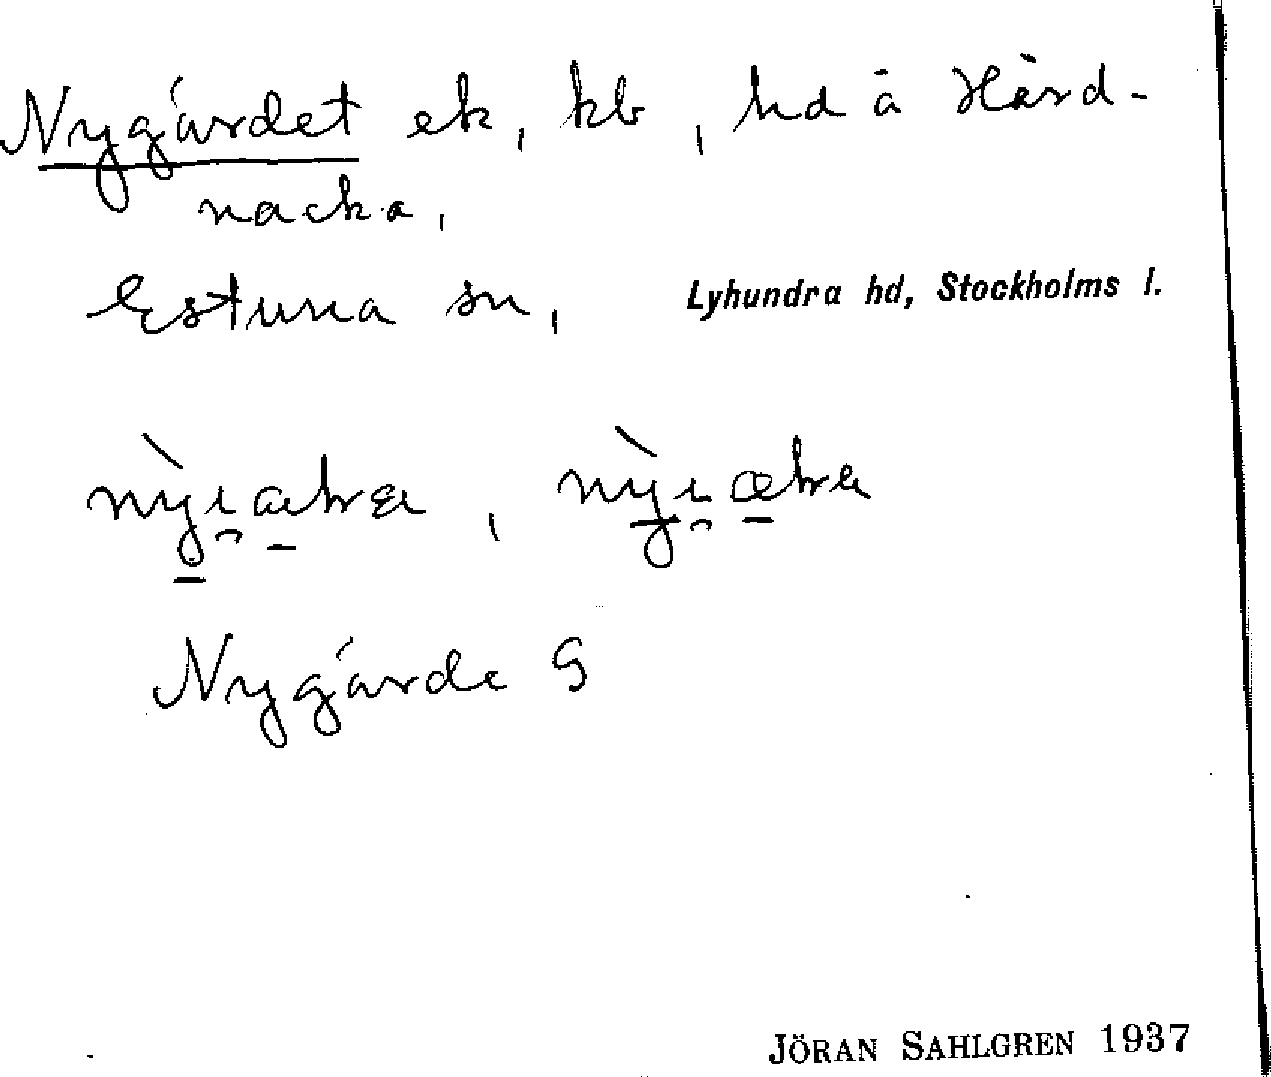 Nygärdet ek, kb, hd å Hård-
nacka,
Estuna sn, Lyhundra hd, Stockholms l.
Nygärde G
JÖRAN SAHLGREN 1937